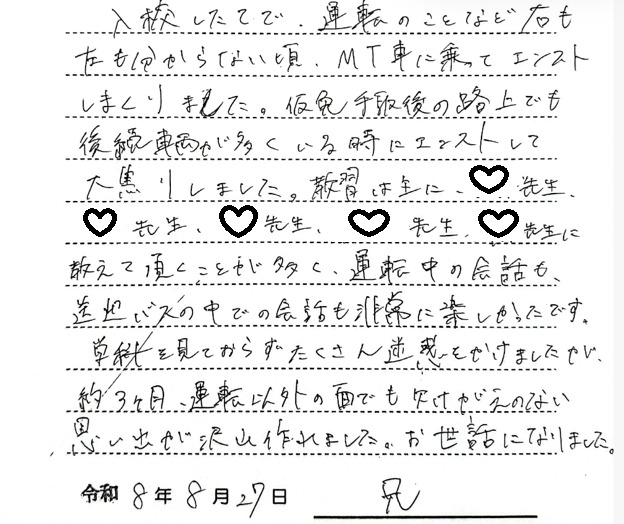 入校したてで、運転のことなど右も
左も分からない頃、MT車に乗ってエンスト
しまくりました。仮免取後の路上でも
後続車両が多くいる時にエンストして
大焦りしました。教習は主に、♡先生、
♡先生、♡先生、♡先生、♡先生に
教えて頂くことが多く、運転中の会話も、
送迎バスの中での会話も非常に楽しかったです。
単純を見ておらずたくさん迷惑をかけましたが、
約3ヶ月、運転以外の面でも欠けがえのない
思い出が沢山作れました。お世話になりました。
令和8年8月27日